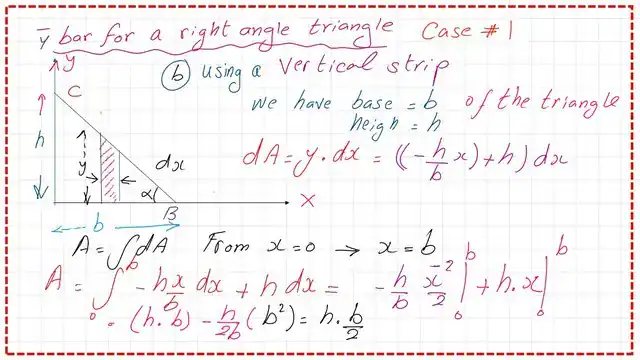 ȳ bar for a right angle triangle Case # 1
y
C
(b) using a vertical strip
we have base = b of the triangle
heigh = h
h
y
dx
α
dA = y . dx = ((-h/b x) + h) dx
B
x
b
A = ∫dA From x = 0 → x = b
A = ∫₀ᵇ -hx/b dx + h dx = -h/b x²/2 |₀ᵇ + h . x |₀ᵇ
= (h . b) - h/2b (b²) = h . b/2